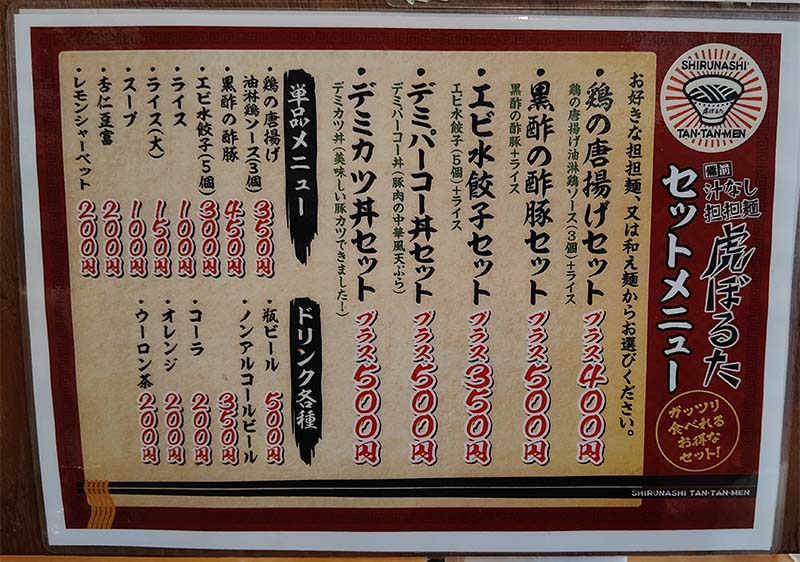 SHIRUNASHI
虎ぼるた
TAN-TAN-MEN
備前
汁なし
担担麺
虎ぼるた
セットメニュー
ガッツリ
食べれる
お得な
セット!
お好きな担担麺、又は和え麺からお選びください。
・鶏の唐揚げセット プラス400円
鶏の唐揚げ油淋鶏ソース(3個)+ライス
・黒酢の酢豚セット プラス500円
黒酢の酢豚+ライス
・エビ水餃子セット プラス350円
エビ水餃子(5個)+ライス
・デミパーコー丼セット プラス500円
デミパーコー丼(豚肉の中華風天ぷら)
・デミカツ丼セット プラス500円
デミカツ丼(美味しい豚カツできました!)
単品メニュー
・鶏の唐揚げ
油淋鶏ソース(3個) 350円
・黒酢の酢豚 450円
・エビ水餃子(5個) 300円
・ライス 100円
・ライス(大) 150円
・スープ 100円
・杏仁豆富 200円
・レモンシャーベット 200円
ドリンク各種
・瓶ビール 500円
・ノンアルコールビール 350円
・コーラ 200円
・オレンジ 200円
・ウーロン茶 200円
SHIRUNASHI TAN-TAN-MEN